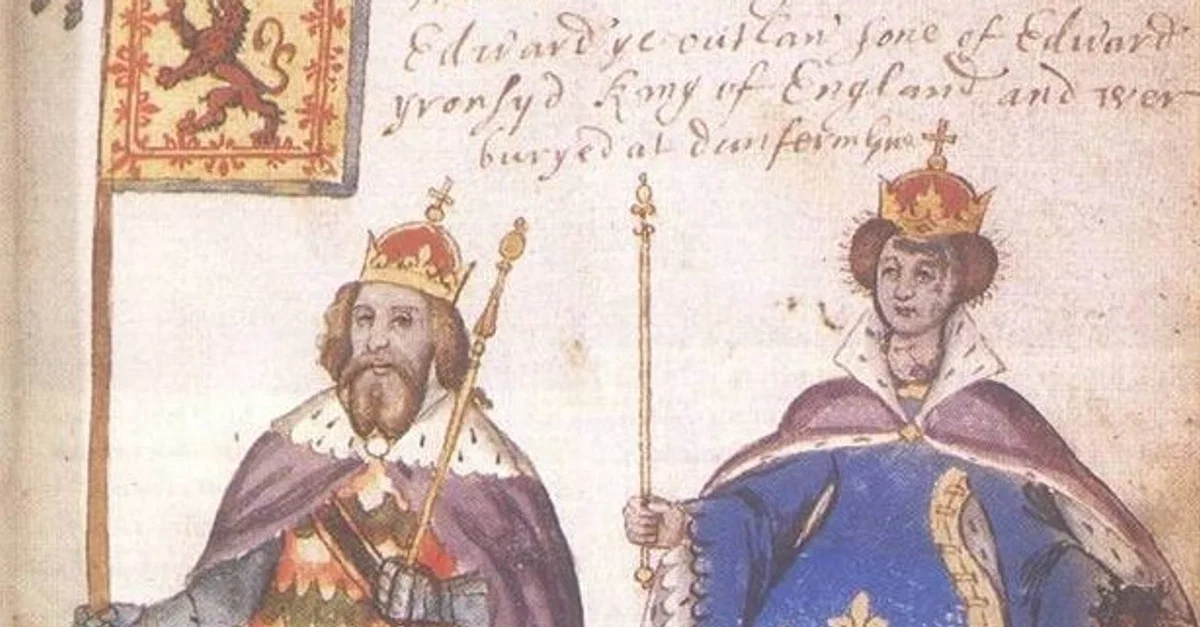 Edward ye outlaw sone of Edward
yronsyd King of England and wer
buryed at dunfermling